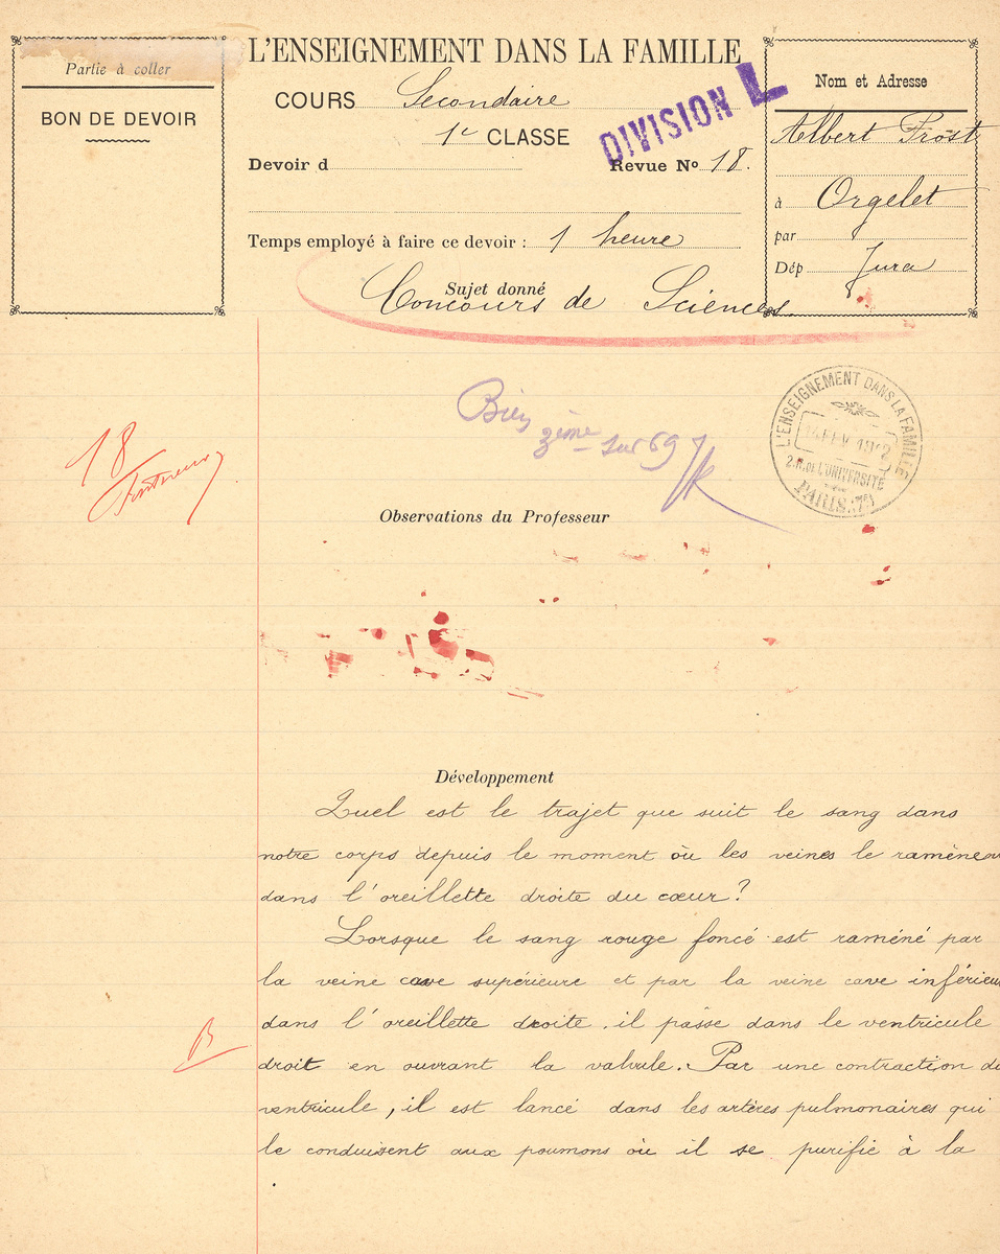 Partie à coller
BON DE DEVOIR
L'ENSEIGNEMENT DANS LA FAMILLE
COURS Secondaire
1e CLASSE
DIVISION L
Devoir d
Revue No 18.
Temps employé à faire ce devoir : 1 heure
Sujet donné
Concours de Sciences.
Nom et Adresse
Albert Prost
à Orgelet
par
Dép Jura
18
Bien
3ème sur 69
L'ENSEIGNEMENT DANS LA FAMILLE
FEV 1912
2.R. DE L'UNIVERSITÉ
PARIS.7e
Observations du Professeur
Développement
Quel est le trajet que suit le sang dans
notre corps depuis le moment où les veines le ramènen
dans l'oreillette droite du cœur?
Lorsque le sang rouge foncé est raméné par
la veine cave supérieure et par la veine cave inférieu
dans l'oreillette droite. il passe dans le ventricule
B
droit en ouvrant la valvule. Par une contraction du
ventricule, il est lancé dans les artères pulmonaires qui
le conduisent aux poumons où il se purifie à la